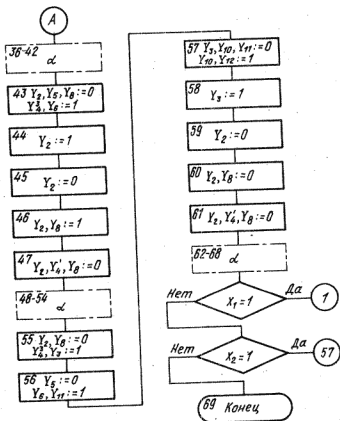 A
36-42
α
43 Y₂,Y₅,Y₈:=0
Y₄³,Y₆:=1
44
Y₂:=1
45
Y₂:=0
46
Y₂,Y₈:=1
47
Y₂,Y₄',Y₈:=0
48-54
α
55 Y₂,Y₈:=0
Y₄³,Y₃:=1
56 Y₅:=0
Y₆,Y₁₁:=1
57 Y₃,Y₁₀,Y₁₁:=0
Y₁₀,Y₁₂:=1
58
Y₃:=1
59
Y₂:=0
60
Y₂,Y₈:=0
61
Y₂,Y₄',Y₈:=0
62-68
α
Нет
X₁=1
Да
1
Нет
X₂=1
Да
57
69 Конец